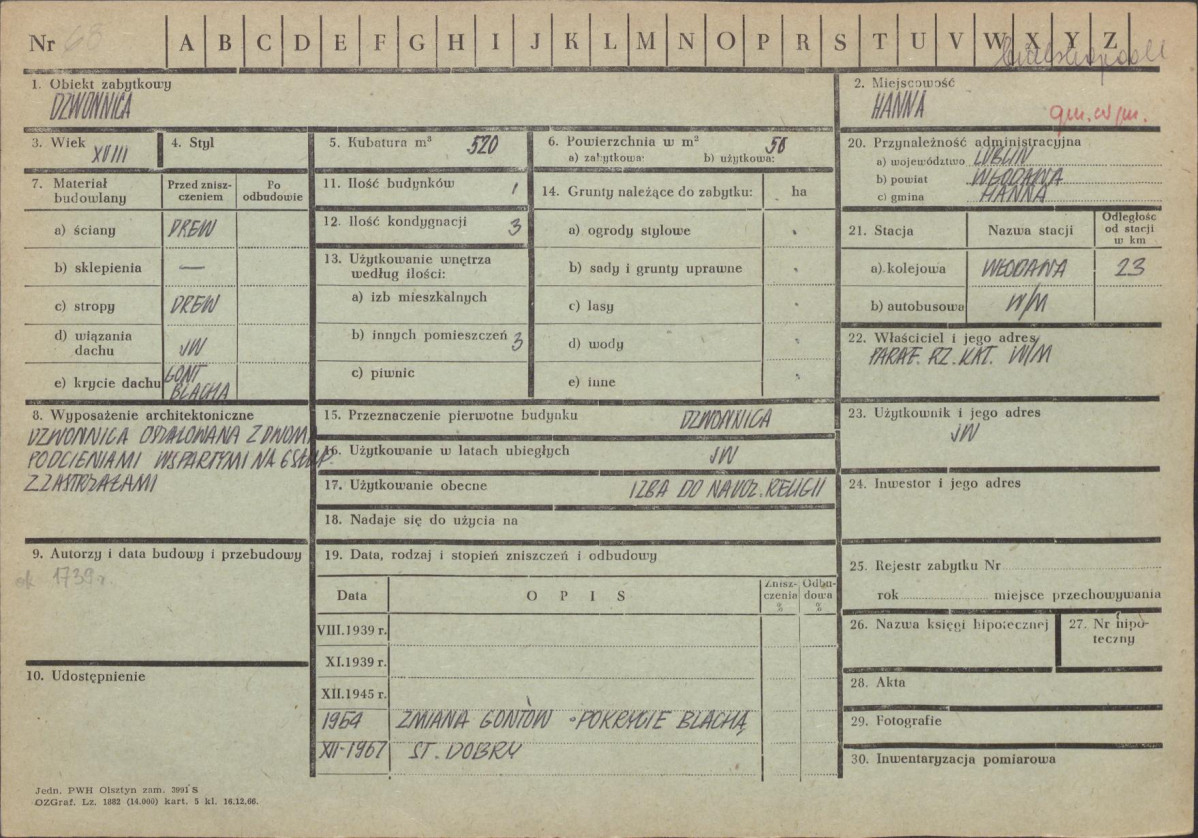 Nr 68 A B C D E F G H I J K L M N O P R S T U V W X Y Z
1. Obiekt zabytkowy
DZWONNICA
2. Miejscowość
HANNA
gm. w/m.
3. Wiek XVIII
4. Styl
5. Kubatura m³ 520
6. Powierzchnia w m² 58
a) zabytkowa: b) użytkowa:
7. Materiał budowlany
Przed zniszczeniem
Po odbudowie
a) ściany DREW
b) sklepienia —
c) stropy DREW
d) wiązania dachu JW
e) krycie dachu GONT BLACHA
11. Ilość budynków 1
12. Ilość kondygnacji 3
13. Użytkowanie wnętrza według ilości:
a) izb mieszkalnych
b) innych pomieszczeń 3
c) piwnic
14. Grunty należące do zabytku: ha
a) ogrody stylowe
b) sady i grunty uprawne
c) lasy
d) wody
e) inne
20. Przynależność administracyjna
a) województwo LUBLIN
b) powiat WŁODAWA
c) gmina HANNA
21. Stacja Nazwa stacji Odległość od stacji w km
a) kolejowa WŁODAWA 23
b) autobusowa W/M
22. Właściciel i jego adres
PARAF. RZ. KAT. W/M
8. Wyposażenie architektoniczne
DZWONNICA OSZALOWANA Z DWOMA
PODCIENIAMI WSPARTYMI NA 6 SŁUP.
Z ZASTRZAŁAMI
15. Przeznaczenie pierwotne budynku DZWONNICA
16. Użytkowanie w latach ubiegłych JW
17. Użytkowanie obecne IZBA DO NAUCZ. RELIGII
18. Nadaje się do użycia na
23. Użytkownik i jego adres
JW
24. Inwestor i jego adres
9. Autorzy i data budowy i przebudowy
ok 1739 r.
10. Udostępnienie
19. Data, rodzaj i stopień zniszczeń i odbudowy
Data OPIS Zniszczenia % Odbudowa %
VIII.1939 r.
XI.1939 r.
XII.1945 r.
1964 ZMIANA GONTÓW - POKRYCIE BLACHĄ
XII-1967 ST. DOBRY
25. Rejestr zabytku Nr
rok miejsce przechowywania
26. Nazwa księgi hipotecznej
27. Nr hipoteczny
28. Akta
29. Fotografie
30. Inwentaryzacja pomiarowa
Jedn. PWH Olsztyn zam. 3991 S
OZGraf. Lz. 1882 (14.000) kart. 5 kl. 16.12.66.